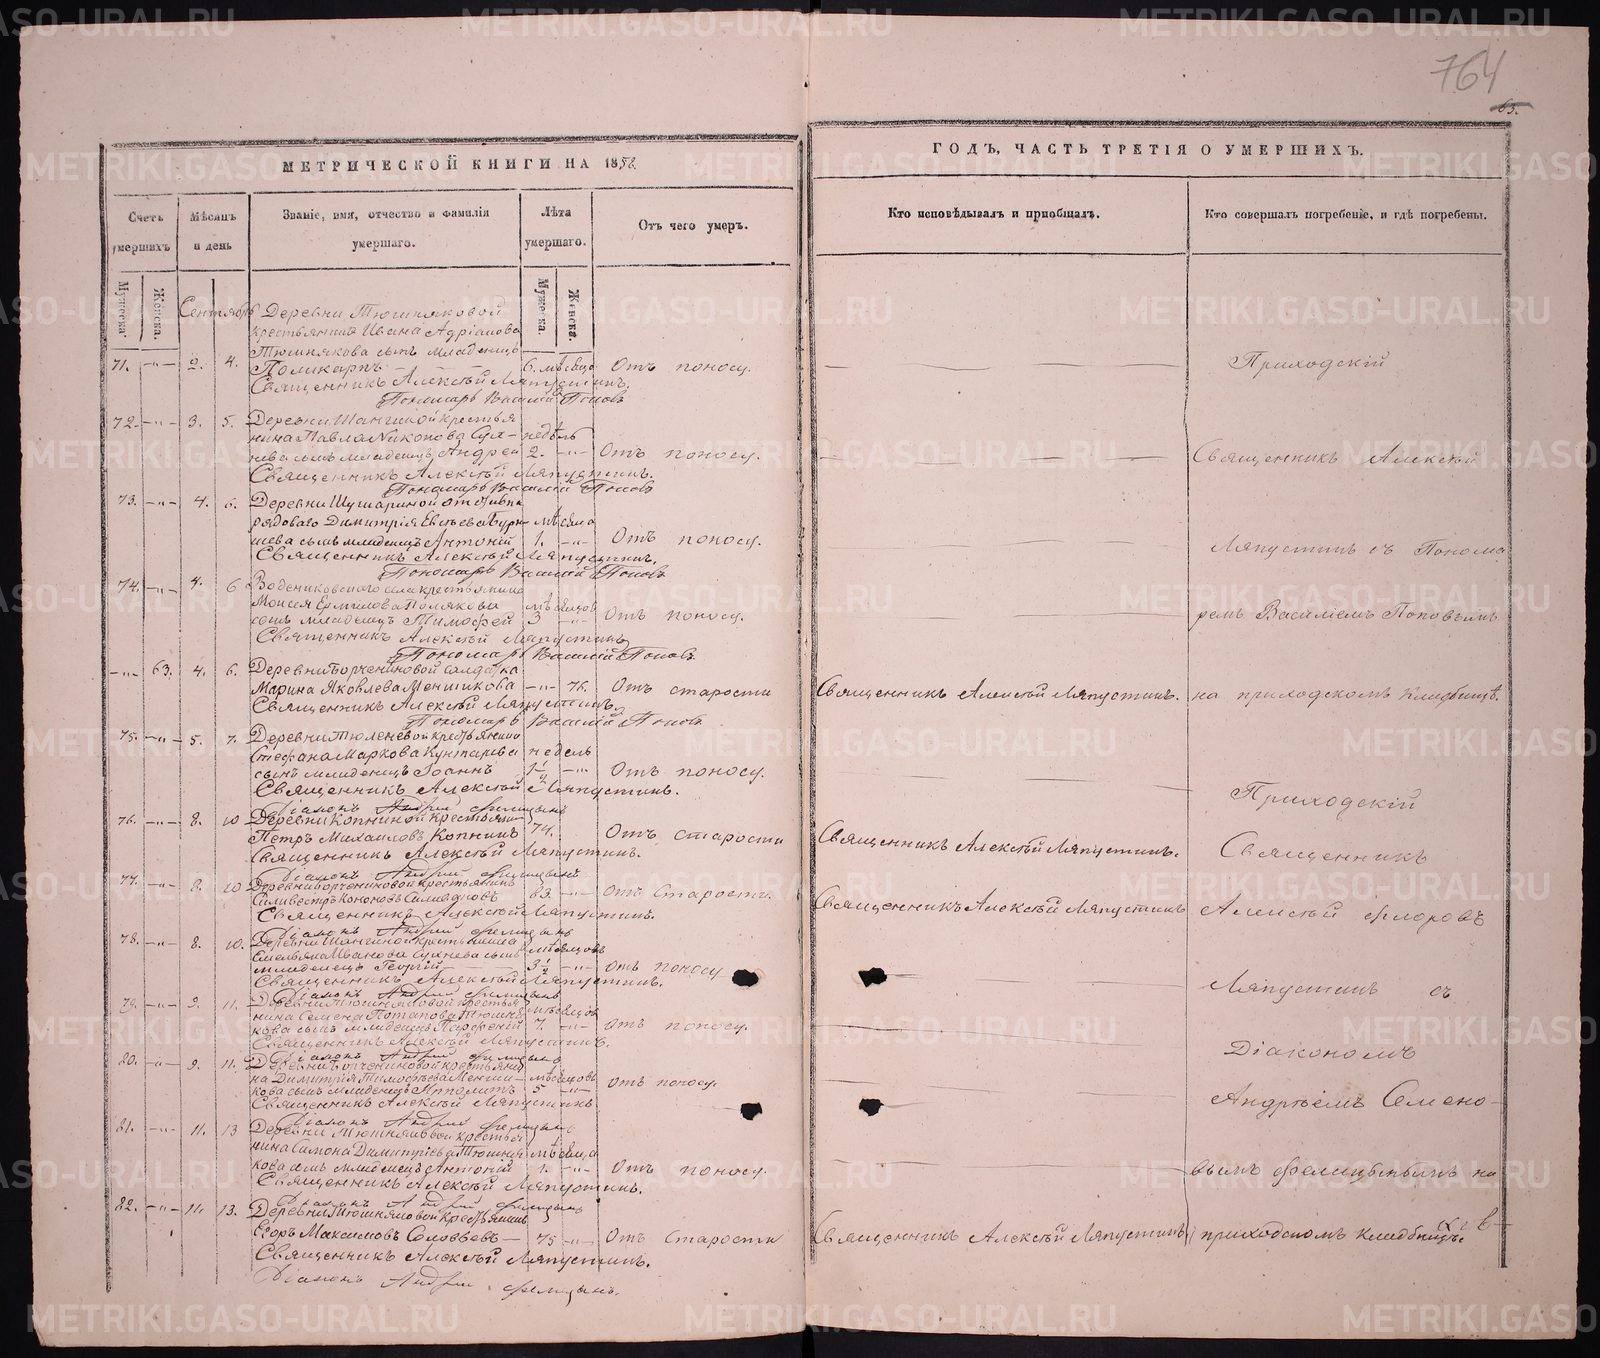 764
63.
МЕТРИЧЕСКОЙ КНИГИ НА 1858
ГОДЪ, ЧАСТЬ ТРЕТІЯ О УМЕРШИХЪ.
Счетъ умершихъ
Мѣсяцъ и день
Званіе, имя, отчество и фамилія умершаго.
Лѣта умершаго.
Отъ чего умеръ.
Кто исповѣдывалъ и пріобщалъ.
Кто совершалъ погребеніе, и гдѣ погребены.
Мужеска.
Женска.
Мужеска.
Женска.
Сентябрь
Деревни Тюшняковой
крестьянина Ивана Адріанова
Тюшнякова сынъ младенецъ
71. -"- 2. 4. Поликарпъ 6. мѣсяцо Отъ поносу. Приходскій
Священникъ Алексѣй Ляпустинъ.
Пономарь Василій Поповъ
72. -"- 3. 5. Деревни Шангиной крестья
нина Павла Никонова Сух- недѣль
нева сынъ младенецъ Андрей 2. -"- Отъ поносу. Священникъ Алексѣй
Священникъ Алексѣй Ляпустинъ.
Пономарь Василій Поповъ
73. -"- 4. 6. Деревни Шушариной
рядоваго Димитрія мѣсяца
сынъ младенецъ Антоній 1. -"- Отъ поносу. Ляпустинъ съ Понома
Священникъ Алексѣй Ляпустинъ.
Пономарь Василій Поповъ
74. -"- 4. 6 Водениковскаго села крестьянина
Моисея Ермилова Полякова мѣсяцов
сынъ младенецъ Тимофей 3 -"- Отъ поносу. ремъ Василіемъ Поповымъ
Священникъ Алексѣй Ляпустинъ
Пономарь Василій Поповъ
-"- 63. 4. 6. Деревни Борчениновой солдатка
Марина Яковлева Меншикова -"- 76. Отъ старости Священникъ Алексѣй Ляпустинъ. на приходскомъ кладбищѣ.
Священникъ Алексѣй Ляпустинъ.
Пономарь Василій Поповъ
75. -"- 5. 7. Деревни Тюленевой крестьянина
Стефана Маркова недель
сынъ младенецъ Іоаннъ 1½ -"- Отъ поносу. Приходскій
Священникъ Алексѣй Ляпустинъ.
Діаконъ Андрей Фелицынъ
76. -"- 8. 10 Деревни Копниной крестьянин
Петръ Михаиловъ Копнинъ 74. Отъ старости Священникъ Алексѣй Ляпустинъ. Священникъ
Священникъ Алексѣй Ляпустинъ.
Діаконъ Андрей Фелицынъ
77. -"- 8. 10 Деревни Борчениковой крестьянинъ
Силивестръ Кононовъ 63. -"- Отъ Старости. Священникъ Алексѣй Ляпустинъ Алексѣй Флоровъ
Священникъ Алексѣй Ляпустинъ.
Діаконъ Андрей Фелицынъ
78. -"- 8. 10. Деревни Шангиной крестьянина
Емельяна Иванова Сухнева сынъ мѣсяцовъ
младенецъ Георгій 3½ -"- Отъ поносу Ляпустинъ съ
Священникъ Алексѣй Ляпустинъ.
Діаконъ Андрей Фелицынъ
79. -"- 9. 11. Деревни Тюшняковой крестья
нина Семена Потапова Тюшня мѣсяцов
кова сынъ младенецъ Парфеній 7. -"- Отъ поносу. Діакономъ
Священникъ Алексѣй Ляпустинъ.
Діаконъ Андрей Фелицынъ
80. -"- 9. 11. Деревни Борчениковой крестьяни
на Димитрія Тимофѣева Менши- мѣсяцовъ
кова сынъ младенецъ Ипполитъ 5 -"- Отъ поносу. Андрѣемъ Семено-
Священникъ Алексѣй Ляпустинъ
Діаконъ Андрей Фелицынъ
81. -"- 11. 13 Деревни Тюшняковой крестья
нина Самона Димитріева Тюшня мѣсяца
кова сынъ младенецъ Антоній 1. -"- Отъ поносу. вымъ Фелицынымъ на
Священникъ Алексѣй Ляпустинъ.
Діаконъ Андрей Фелицынъ
82. -"- 11. 13. Деревни Тюшняковой крестьянинъ
Егоръ Максимовъ Соловьевъ 75 -"- Отъ Старости Священникъ Алексѣй Ляпустинъ приходскомъ кладбищѣ
Священникъ Алексѣй Ляпустинъ.
Діаконъ Андрей Фелицынъ.
METRIKI.GASO-URAL.RU